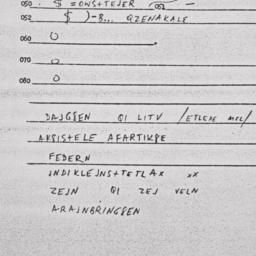 050. $ = ONS+TEJER
052 $ )-8... QZENAKALE
060 0
070 0
080 0
DAJGSEN QI LITV /ETLEXE MEL/
AXSISTELE AFARTIKSE
FEDERN
INDIKLEJNS+TETLAX XX
ZEJN QI ZEJ VELN
ARAJNBRINGSEN